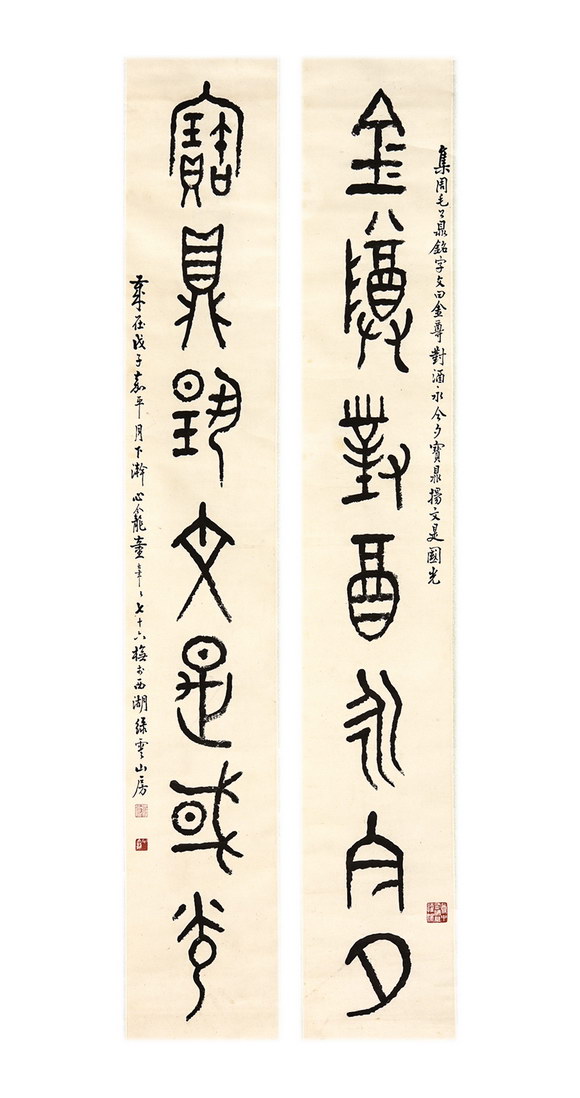 集周毛公鼎銘字文曰金尊對酒永今夕寶鼎揚文是國光
金尊對酒永今夕
寶鼎揚文是國光
歲在戊子嘉平月下澣 七十六 於西湖綠雲山房